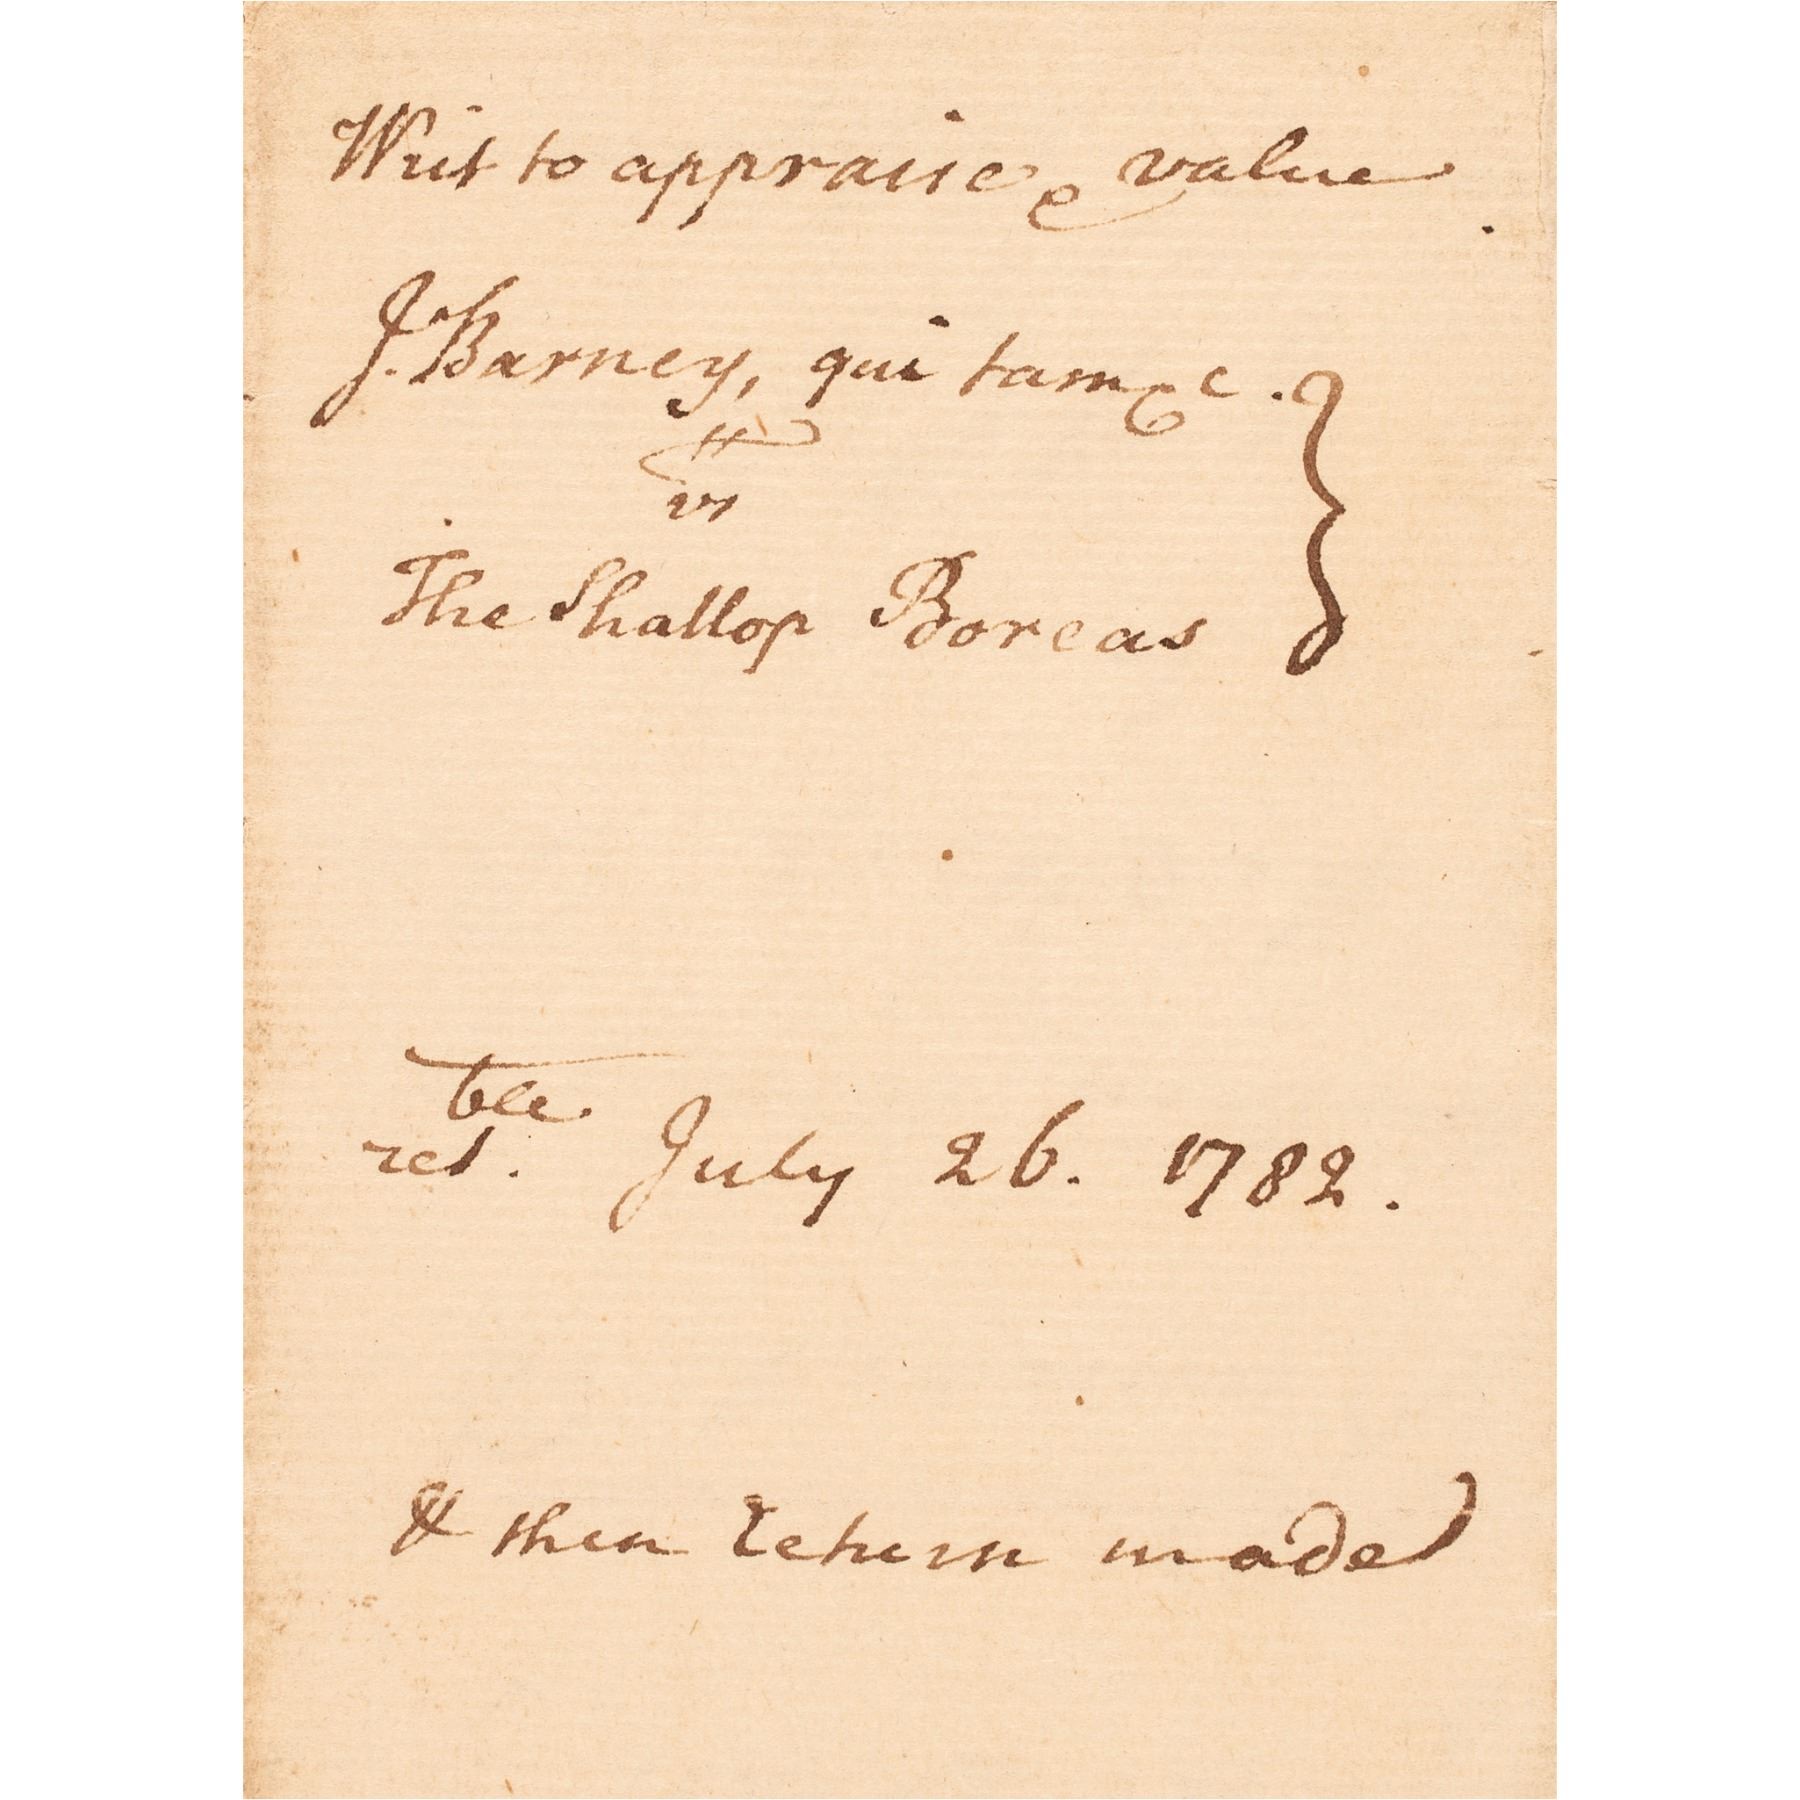 Writ to appraise & value
J. Barney, qui tam &c.
vs
The Shallop Boreas
ret.ble July 26. 1782.
& then return made